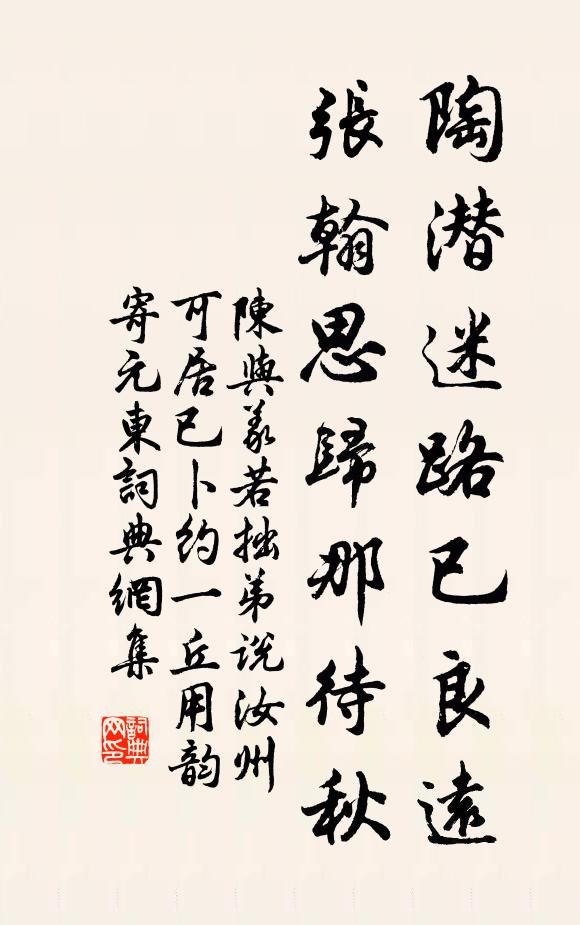 陶潜迷路已良遠
張翰思歸那待秋
陳與義若拙弟說汝州
可居已卜約一丘用韵
寄元東詞典網集
詞典
网印